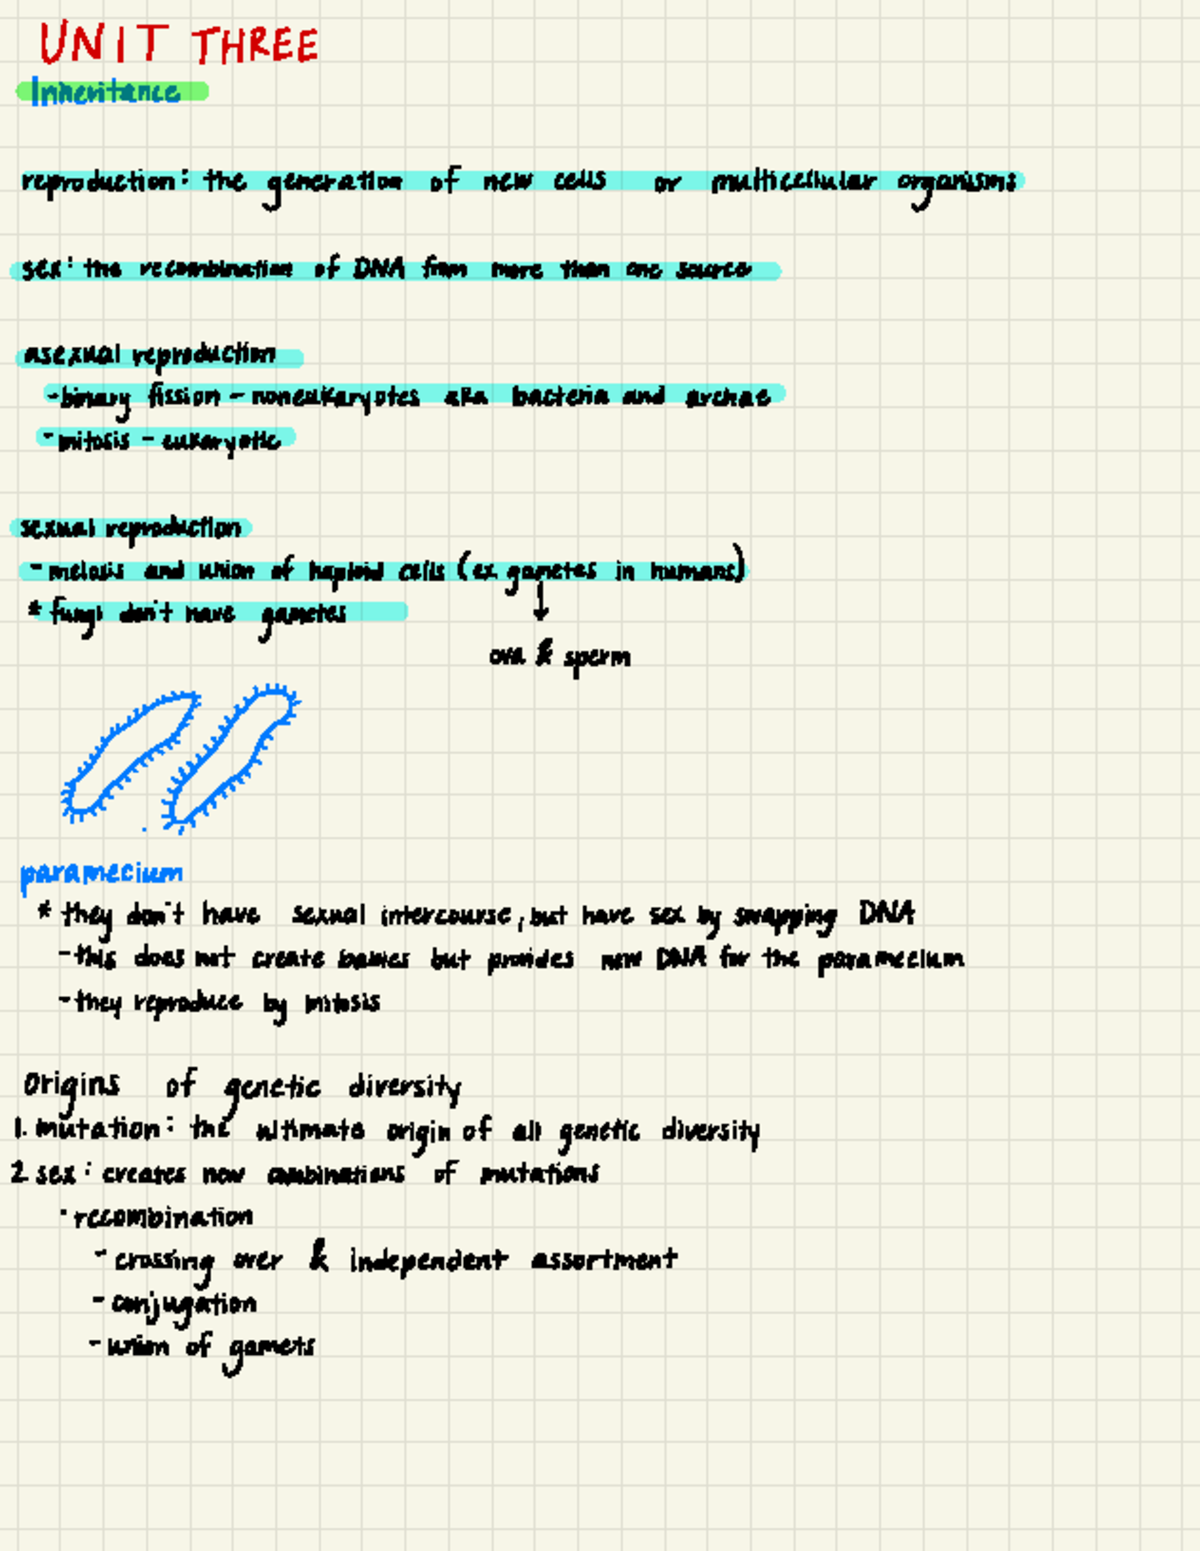 UNIT THREE
Inheritance
reproduction: the generation of new cells or multicellular organisms
sex: the recombination of DNA from more than one source
asexual reproduction
-binary fission - noneukaryotes aka bacteria and archae
-mitosis - eukaryotic
sexual reproduction
-meiosis and union of haploid cells (ex gametes in humans)
* fungi don't have gametes
ova & sperm
paramecium
* they don't have sexual intercourse, but have sex by swapping DNA
-this does not create babies but provides new DNA for the paramecium
-they reproduce by mitosis
origins of genetic diversity
1. mutation: the ultimate origin of all genetic diversity
2 sex: creates new combinations of mutations
· recombination
- crossing over & independent assortment
- conjugation
- union of gamets